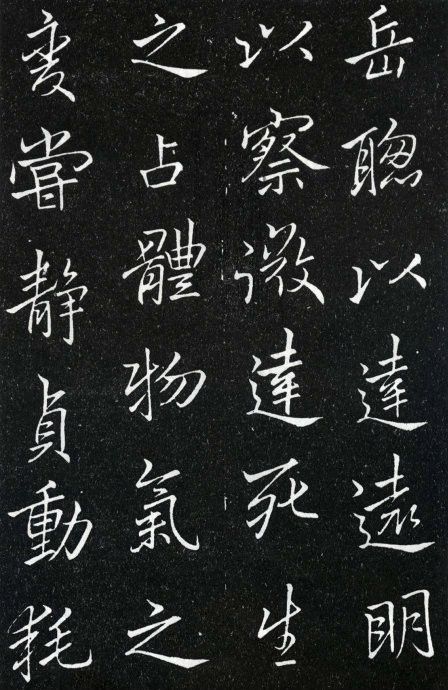 岳聦以達遠明
以察微達死生
之占體物氣之
変嘗静貞動耗